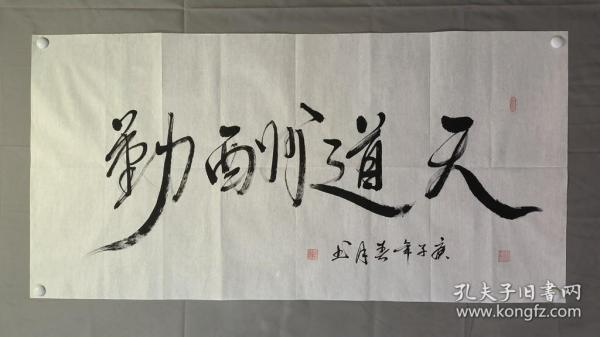 天道酬勤
庚子年春月书
孔夫子旧书网
www.kongfz.com